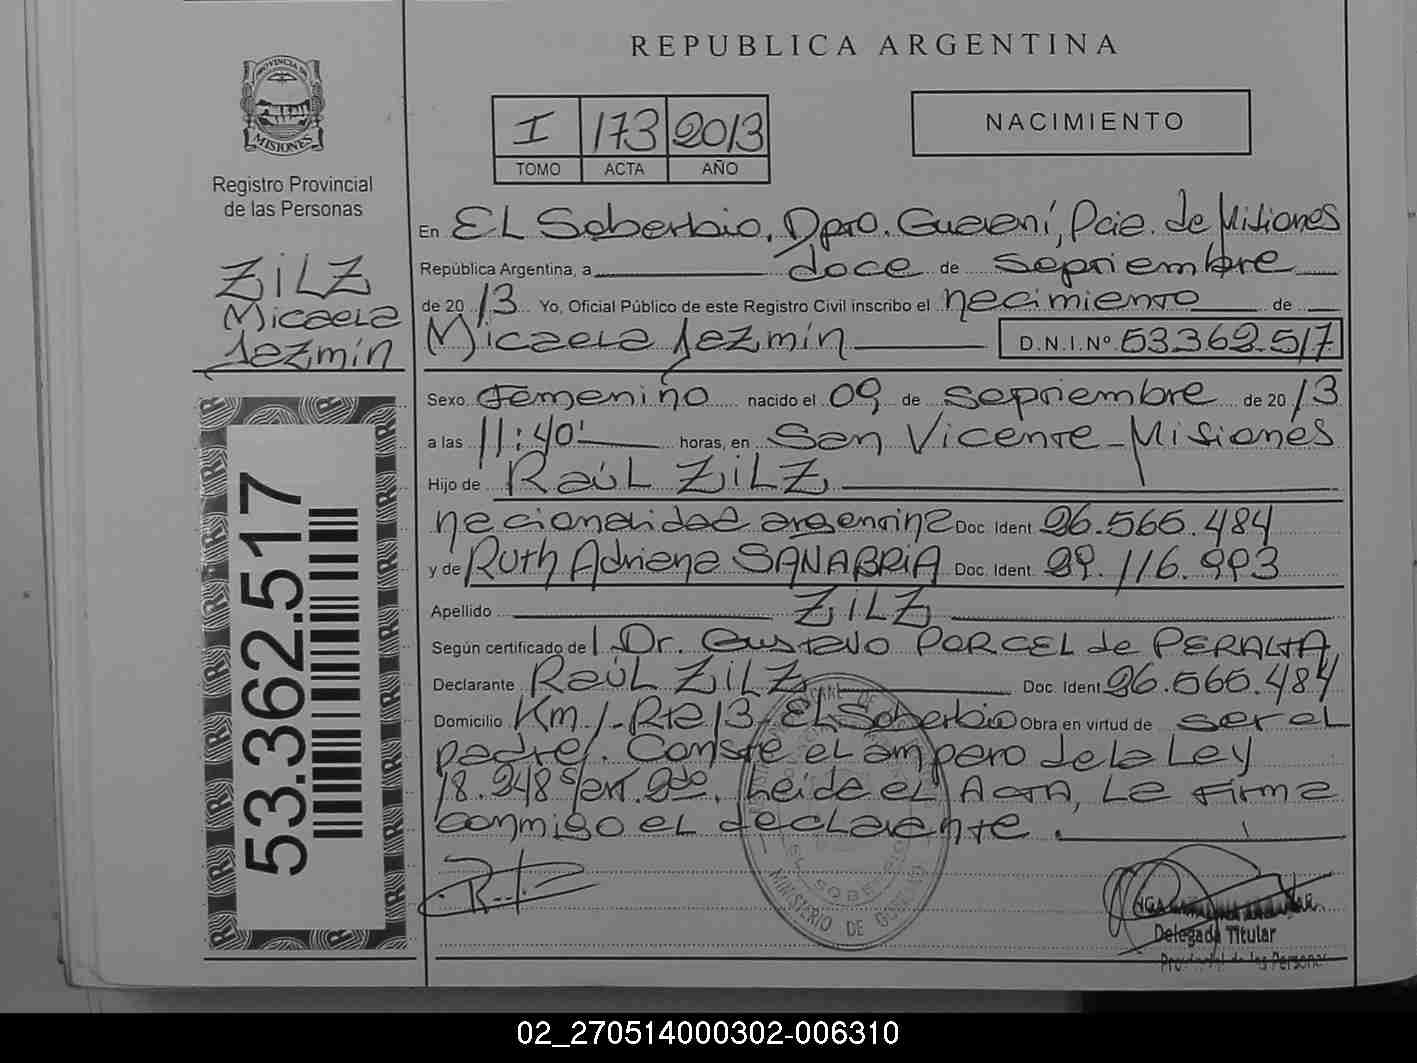 REPUBLICA ARGENTINA
PROVINCIA DE
MISIONES
Registro Provincial
de las Personas
I 173 2013
TOMO ACTA AÑO
NACIMIENTO
ZILZ
Micaela
Jazmín
53.362.517
En El Soberbio, Dpto. Guaraní, Pcia. de Misiones
República Argentina, a doce de septiembre
de 2013 Yo, Oficial Público de este Registro Civil inscribo el nacimiento de
Micaela Jazmín D.N.I.Nº 53.362.517
Sexo Femenino nacido el 09 de septiembre de 2013
a las 11:40' horas, en San Vicente-Misiones
Hijo de Raúl ZILZ
nacionalidad argentina Doc. Ident. 26.565.484
y de Ruth Adriana SANABRIA Doc. Ident. 29.116.993
Apellido ZILZ
Según certificado del Dr. Gustavo PORCEL de PERALTA
Declarante Raúl ZILZ Doc. Ident. 26.565.484
Domicilio Km 1-Rta 13-El Soberbio Obra en virtud de ser el
padre. Conste el amparo de la Ley
18.248 art. 2do. Leída el Acta, la firma
conmigo el declarante.
MINISTERIO DE GOBIERNO
Delegada Titular
02_270514000302-006310